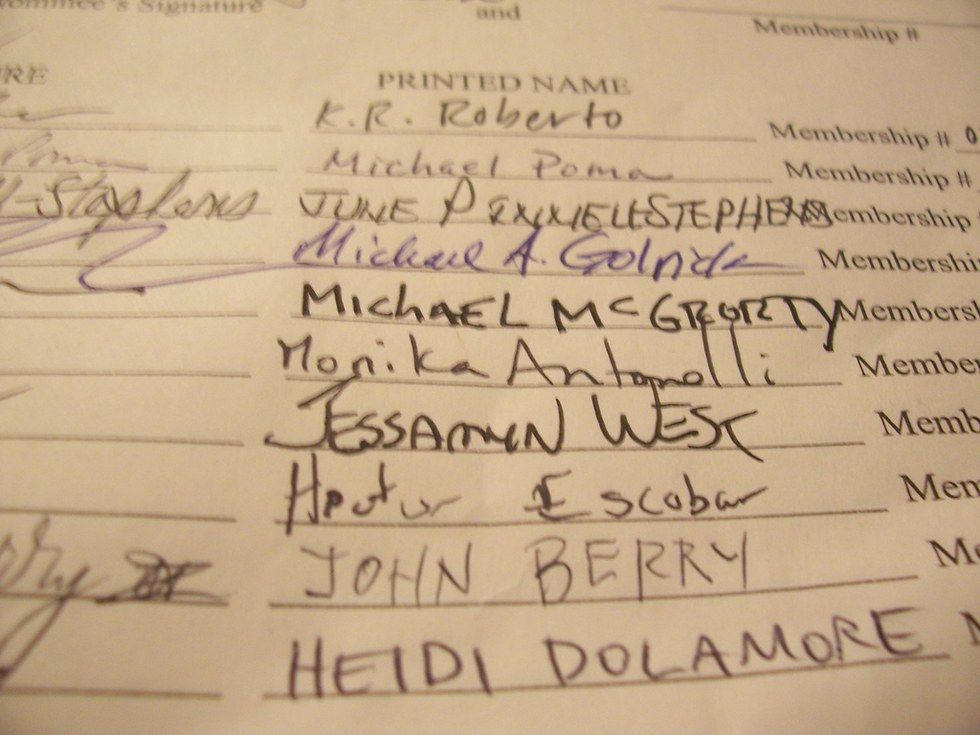 Nominee's Signature
and
Membership #
PRINTED NAME
K.R. Roberto Membership # 0
Poma Michael Poma Membership #
Stephens JUNE PINNELL-STEPHENS Membership
Michael A. Golrick Membership
MICHAEL McGRORTY Members
Monika Antonelli Member
JESSAMYN WEST Memb
Hector Escobar Mem
JOHN BERRY Me
HEIDI DOLAMORE M